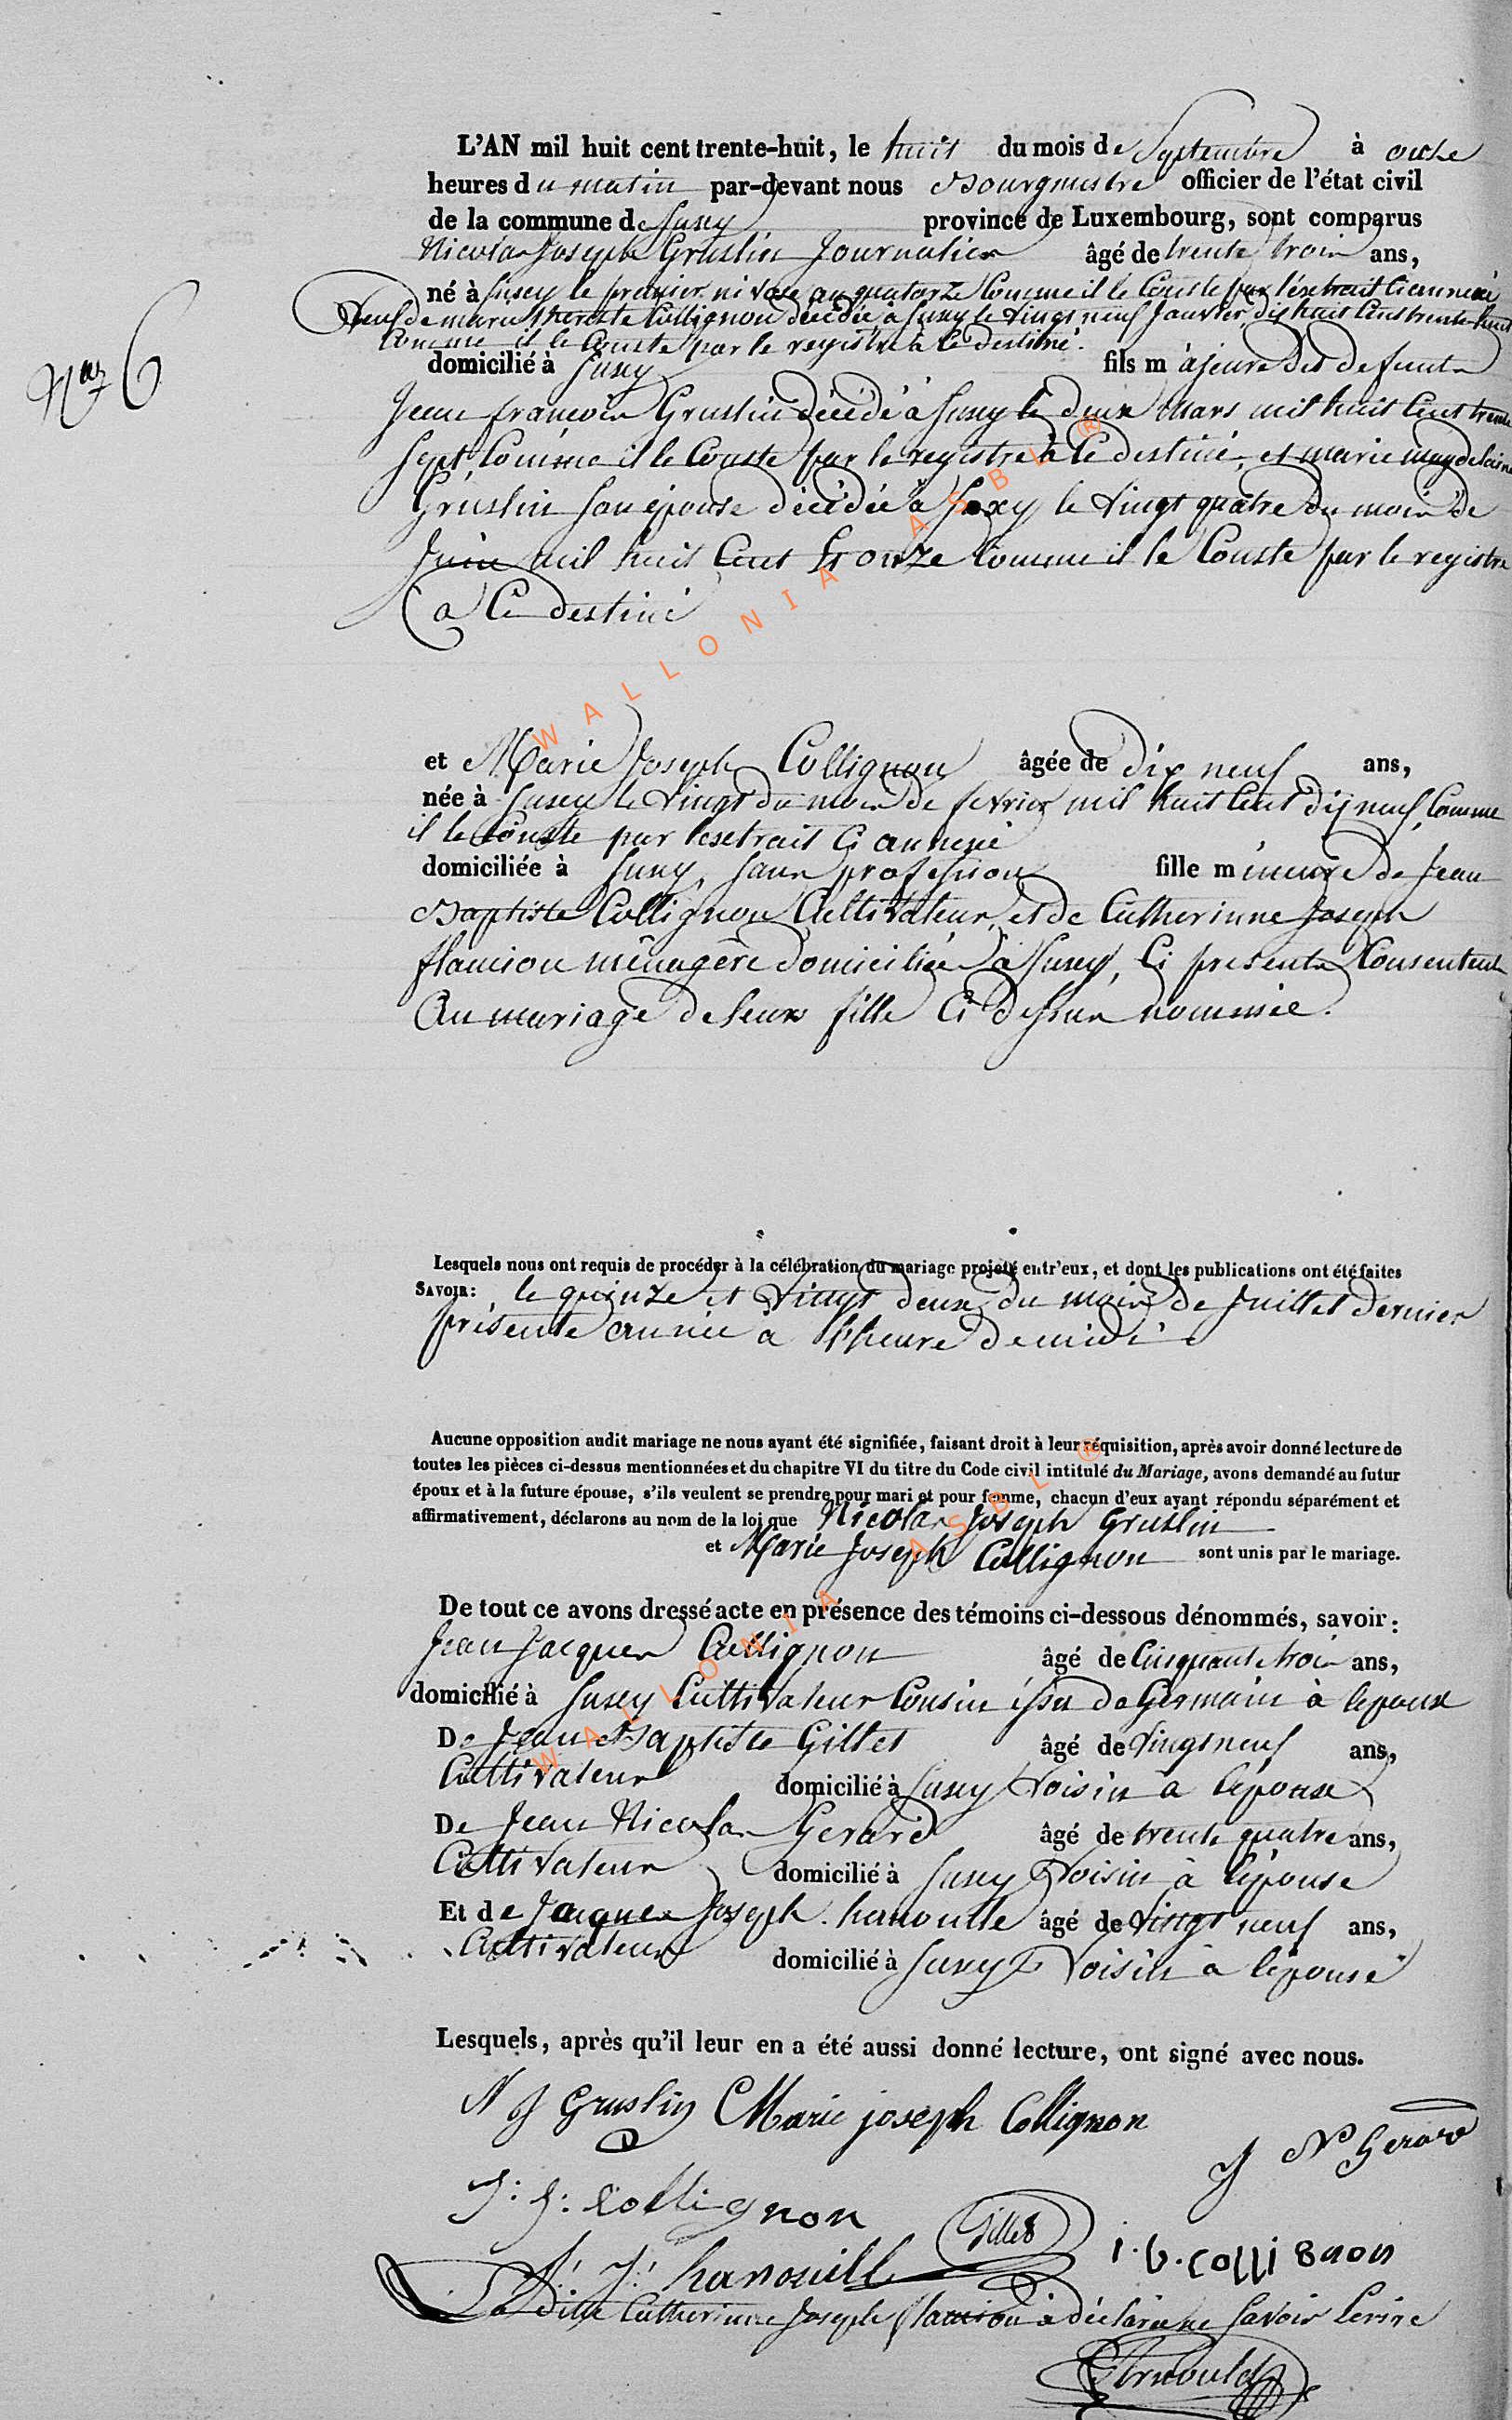 L'AN mil huit cent trente-huit, le huit du mois de Septembre à onze
heures du matin par-devant nous Bourgmestre officier de l'état civil
de la commune de Suxy province de Luxembourg, sont comparus
Nicolas Joseph Gruslin Journalier âgé de trente trois ans,
né à Suxy le premier nivose an quatorze Comme il le Conste par l'extrait ci annexé
Veuf de marie therese Collignon décédée à Suxy le vingt neuf Janvier dix huit Cent trente huit
Comme il le Conste par le registre à ce destiné.
domicilié à Suxy fils majeure des defunts
Nas 6
Jean françois Gruslin décédé à Suxy le deux Mars mil huit Cent trente
Sept, Comme il le Conste par le registre à Ce destiné, et marie magdelaine
Gruslin Son épouse décédée à Suxy le vingt quatre du mois de
Juin mil huit Cent onze Comme il le Conste par le registre
a Ce destiné
et Marie Joseph Collignon âgée de dix neuf ans,
née à Suxy le vingt du mois de fevrier mil huit Cent dix neuf, Comme
il le Conste par lextrait Ci annexé
domiciliée à Suxy, Sans profession fille mineure de Jean
Baptiste Collignon Cultivateur, et de Catherinne Joseph
flamion ménagère domiciliée à Suxy, Ci presents Consentent
Au mariage de leur fille Ci dessus nommée.
Lesquels nous ont requis de procéder à la célébration du mariage projeté entr'eux, et dont les publications ont été faites
SAVOIR: le quinze et vingt deux du mois de Juillet dernier
présente année à l'heure de midi
Aucune opposition audit mariage ne nous ayant été signifiée, faisant droit à leur réquisition, après avoir donné lecture de
toutes les pièces ci-dessus mentionnées et du chapitre VI du titre du Code civil intitulé du Mariage, avons demandé au futur
époux et à la future épouse, s'ils veulent se prendre pour mari et pour femme, chacun d'eux ayant répondu séparément et
affirmativement, déclarons au nom de la loi que Nicolas Joseph Gruslin
et Marie Joseph Collignon sont unis par le mariage.
De tout ce avons dressé acte en présence des témoins ci-dessous dénommés, savoir:
Jean Jacques Collignon âgé de Cinquante trois ans,
domicilié à Suxy Cultivateur Cousin issu de Germain à lepoux
De Jean Baptiste Gillet âgé de vingt neuf ans,
Cultivateur domicilié à Suxy Voisin à lépoux
De Jean Nicolas Gerard âgé de trente quatre ans,
Cultivateur domicilié à Suxy Voisin à l'épouse
Et de Jacques Joseph hanouille âgé de vingt neuf ans,
Cultivateur domicilié à Suxy Voisin à lépouse
Lesquels, après qu'il leur en a été aussi donné lecture, ont signé avec nous.
N J Gruslin Marie joseph Collignon
J N Gerard
J: J: Collignon
Gilles
i. b. collignon
J: J: hanouille
La ditte Catherinne Joseph flamion à déclaré ne Savoir Ecrire
Arnould
WALLONIA ASBL ®
WALLONIA ASBL ®